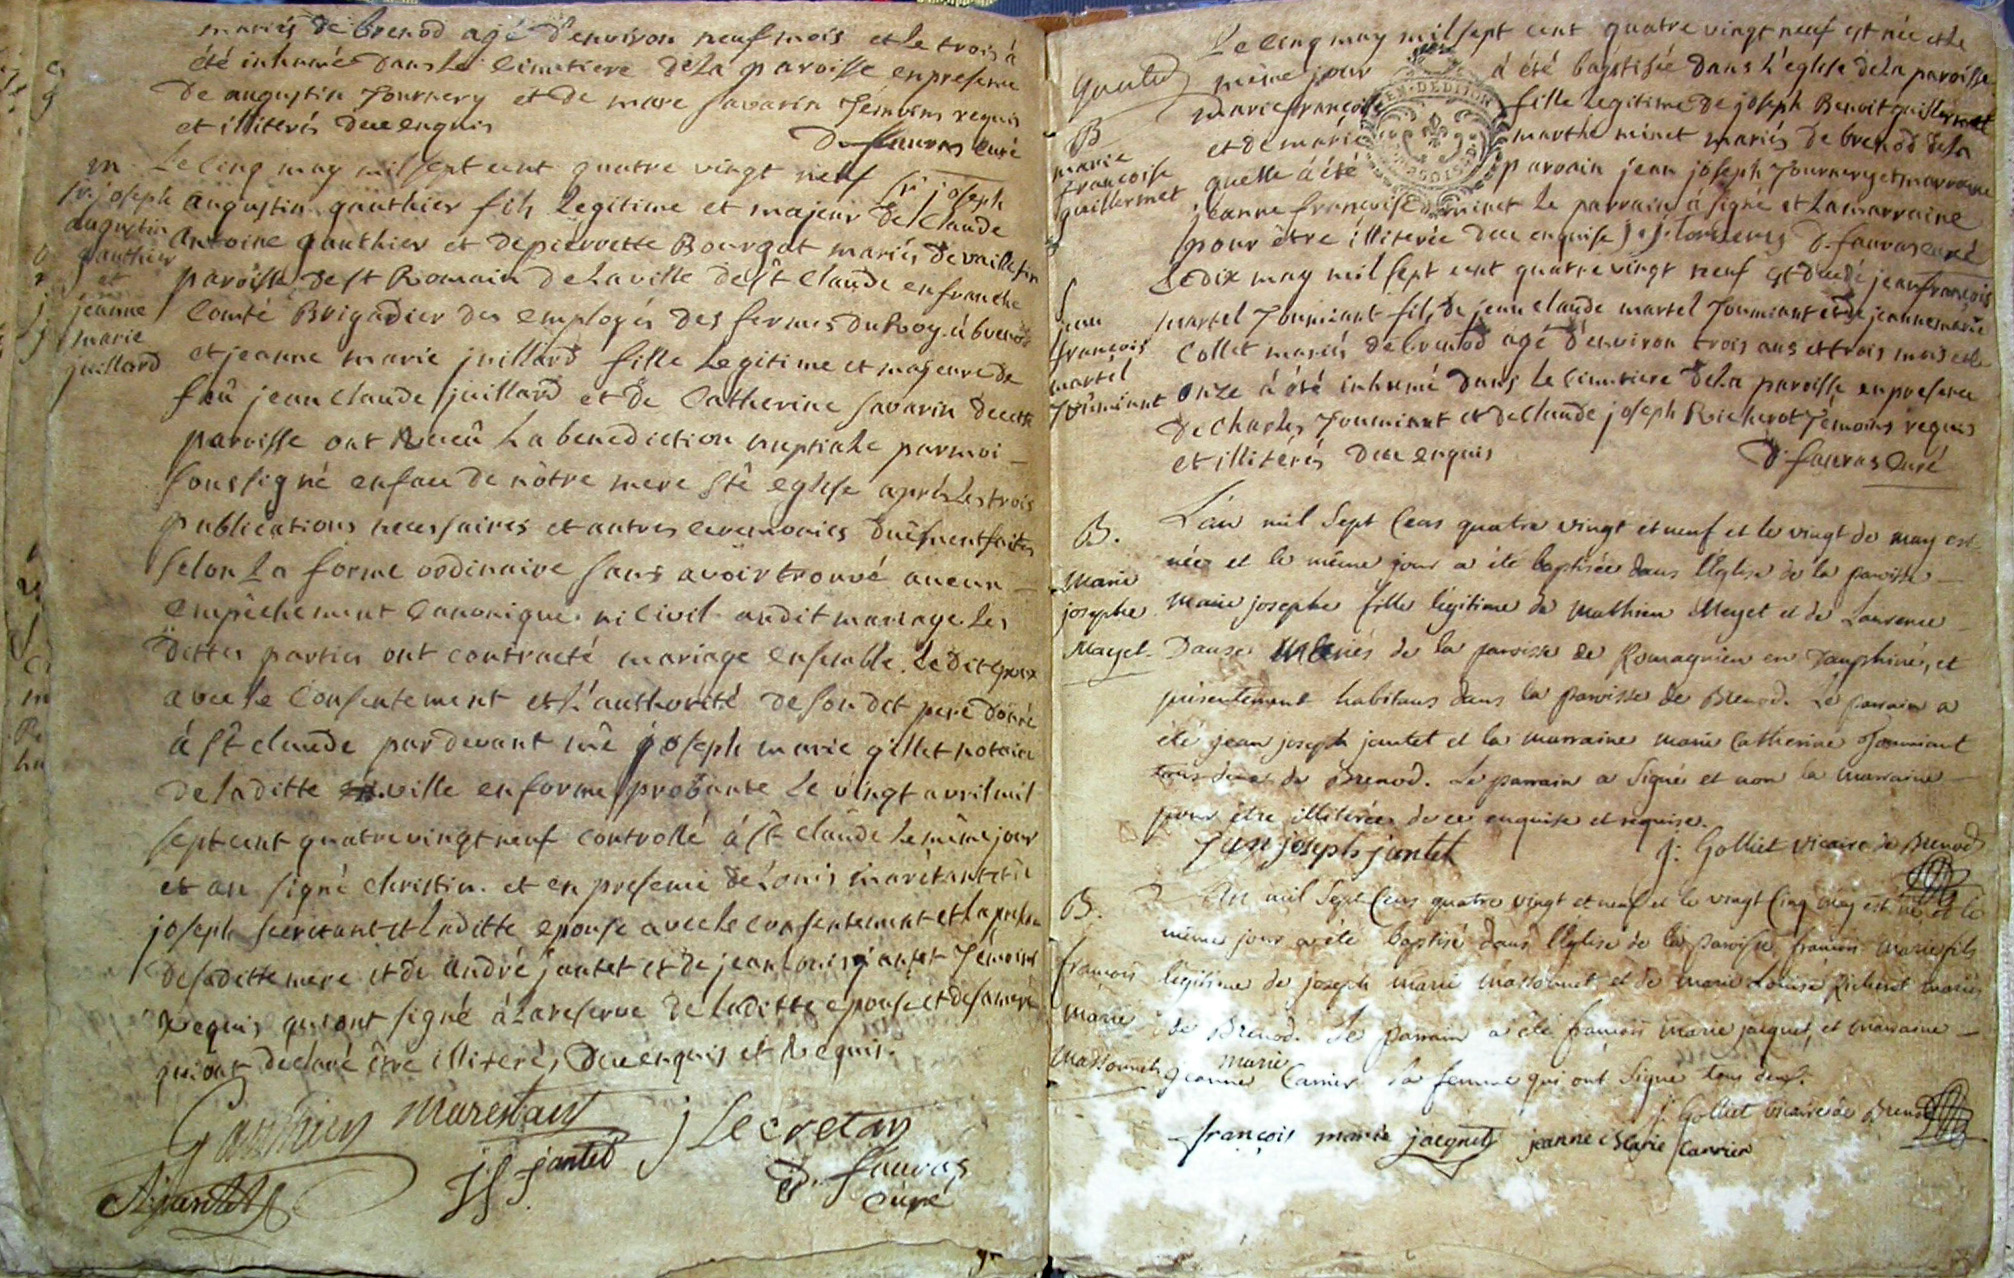 mariés de brenod agé d'environ neuf mois et le trois à
été inhumé dans le cimetiere de la paroisse en presence
de augustin Tournery et de marc Savarin témoins requis
et illiterés de ce enquis
D. fauvas curé
m.
Sr. joseph
augustin
gauthier
et
jeanne
marie
juillard
Le cinq may mil sept cent quatre vingt neuf Sr joseph
augustin gauthier fils legitime et majeur de Claude
antoine gauthier et de pierrette Bourgat mariés de vaillefin
paroisse de st Romain de la ville de st Claude en franche
Comté Brigadier des employés des fermes du Roy à brenod
et jeanne marie juillard fille legitime et majeure de
feû jean claude juillard et de Catherine Savarin de cette
paroisse ont Receû La benediction nuptiale par moi
soussigné en face de nôtre mere Ste eglise après les trois
publications necessaires et autres ceremonies duëment faites
selon La forme ordinaire sans avoir trouvé aucun
empêchement Canonique ni civil au dit mariage les
dittes parties ont contracté mariage ensemble. le dit epoux
avec le Consentement et l'authorité de son dit pere donné
à st claude par devant me joseph marie gillet notaire
de la ditte ville en forme probante Le vingt avril mil
sept cent quatre vingt neuf controllé à st claude le même jour
et au signé christin. et en presence de Louis marétant et de
joseph secretant et laditte epouse avec le consentement et la presence
de sa ditte mere et de andré jantet et de jean louis jantet témoins
requis qui ont signé à la reserve de laditte epouse et de sa mere
qui ont declaré être illiterés de ce enquis et Requis.
Gauthier marestans j Secretan
A jantet jl jantet D. fauvas
curé
gauted
B
marie
françoise
guillermet
Le cinq may mil sept cent quatre vingt neuf est née et le
même jour à été baptisée dans l'église de la paroisse
marie françoise fille legitime de joseph Benoit guillermet
et de marie marthe minet mariés de brenod de la
quelle à été parain jean joseph Tournery et marraine
jeanne françoise minet le parrain à signé et la marraine
pour être illiterée de ce enquise D. fauvas curé
EN DEDITION
jean
françois
martel
Touminant
Le dix may mil sept cent quatre vingt neuf est decedé jean françois
martel Touminant fils de jean claude martel Touminant et de jeanne marie
Collet mariés de brenod agé d'environ trois ans et trois mois et le
onze à été inhumé dans le cimetiere de la paroisse en presence
de charles Touminant et de claude joseph Richerot témoins requis
et illiterés de ce enquis
D. fauvas Curé
B.
Marie
josephe
Mayet
L'an mil Sept Cens quatre vingt et neuf et le vingt de may est
née et le même jour a été baptisée dans l'Eglise de la paroisse
Marie josephe fille légitime de Mathieu Mayet et de Laurence
Danse Mariés de la paroisse de Romagnieu en Dauphiné, et
présentement habitans dans la paroisse de Brenod. Le parrain a
été jean joseph jantet et la marraine marie Catherine Touminant
tous deux de Brenod. Le parrain a Signé et non la marraine
pour être illiterée de ce enquise et requise.
jean joseph jantet J: Golliet vicaire de Brenod
B.
françois
marie
Massonnet
L'An mil Sept Cens quatre vingt et neuf et le vingt Cinq may est né et le
même jour a été baptisé dans l'Eglise de la paroisse françois marie fils
légitime de joseph marie Massonnet et de marie Louise Richerot mariés
de Brenod. Le parrain a été françois marie jacquet, et marraine
jeanne marie Carrier Sa femme qui ont Signé tous deux.
J. Golliet vicaire de Brenod
françois marie jacquet jeanne Marie Carrier